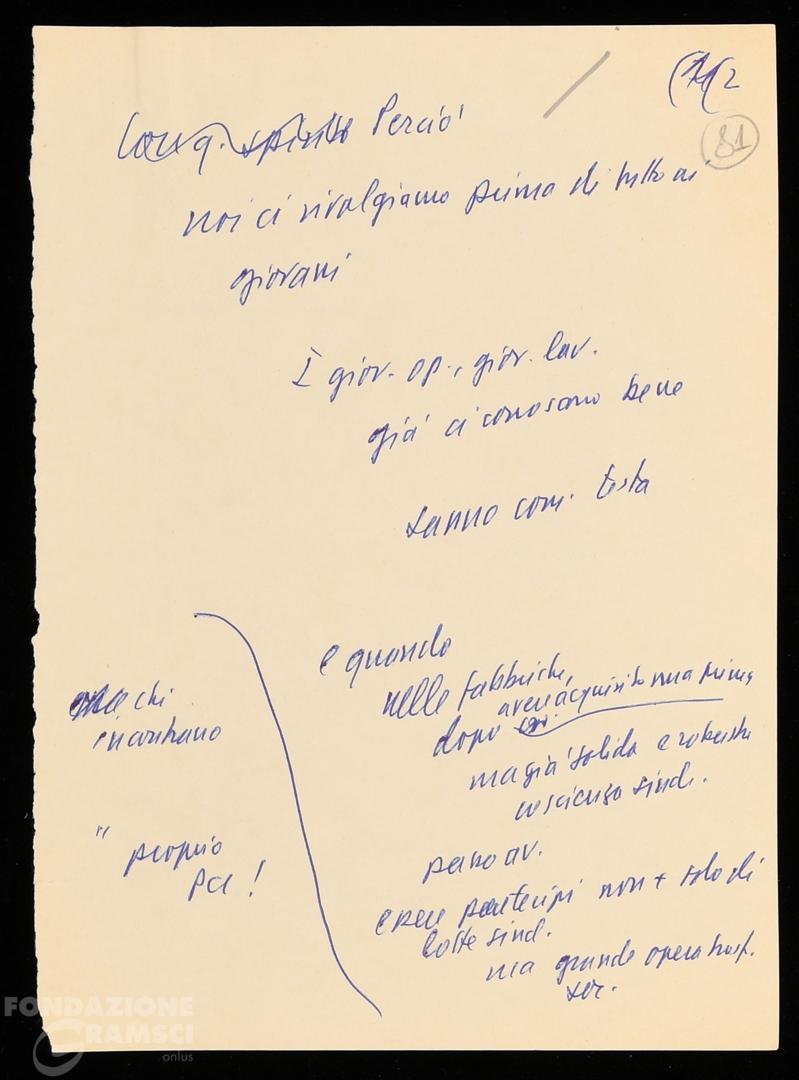 2
81
Con q. spirito Perciò
noi ci rivolgiamo prima di tutto ai
giovani
I giov. op., giov. lav.
già ci conoscono bene
sanno com. testa
e quando
nelle fabbriche,
dopo aver acquisito una prima,
ma già solida e robusta
coscienza sind.
passo av.
essere partecipi non + solo di
lotte sind.
ma grande opera trasf.
soc.
ecco chi
incontrano
" proprio
PCI !
FONDAZIONE
GRAMSCI
onlus